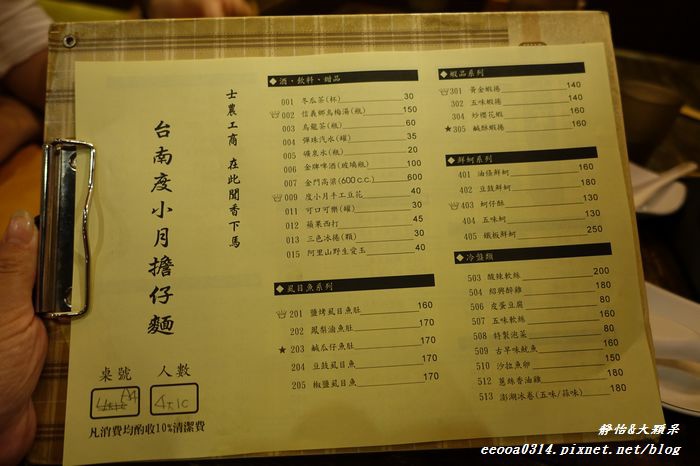 台南度小月擔仔麵
士農工商 在此聞香下馬
桌號 人數
4+1C
凡消費均酌收10%清潔費
◆酒、飲料、甜品
001 冬瓜茶(杯) 30
002 信義鄉烏梅湯(瓶) 150
003 烏龍茶(瓶) 60
004 彈珠汽水(罐) 35
005 礦泉水(瓶) 20
006 金牌啤酒(玻璃瓶) 100
007 金門高粱(600 c.c.) 600
009 度小月手工豆花 40
011 可口可樂(罐) 30
012 蘋果西打 45
013 三色冰捲(顆) 30
015 阿里山野生愛玉 40
◆虱目魚系列
201 鹽烤虱目魚肚 160
202 鳳梨滷魚肚 170
★ 203 鹹瓜仔魚肚 170
204 豆鼓虱目魚 170
205 椒鹽虱目魚 170
◆蝦品系列
301 黃金蝦捲 140
302 五味蝦捲 140
304 炒櫻花蝦 160
★ 305 鹹酥蝦捲 160
◆鮮蚵系列
401 油條鮮蚵 160
402 豆鼓鮮蚵 180
403 蚵仔酥 130
404 五味蚵 130
405 鐵板鮮蚵 250
◆冷盤類
503 酸辣軟絲 200
504 紹興醉雞 180
506 皮蛋豆腐 80
507 五味軟絲 160
508 特製泡菜 80
509 古早味魷魚 160
510 沙拉魚卵 150
512 蔥絲香油雞 180
513 澎湖冰卷(五味/蒜味) 180
靜怡&大顆呆
eeooa0314.pixnet.net/blog